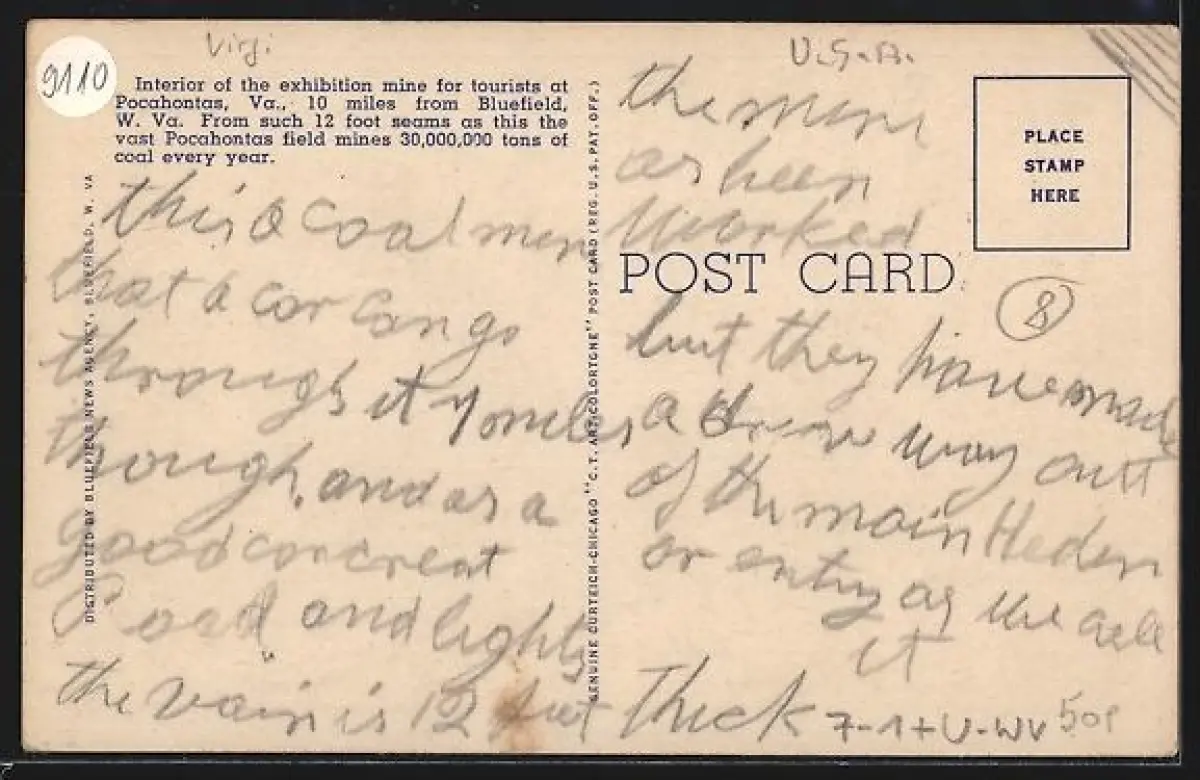 9110
Virgi
U.S.A.
Interior of the exhibition mine for tourists at
Pocahontas, Va., 10 miles from Bluefield,
W. Va. From such 12 foot seams as this the
vast Pocahontas field mines 30,000,000 tons of
coal every year.
DISTRIBUTED BY BLUEFIELD NEWS AGENCY, BLUEFIELD, W. VA
this a coal
that a car can go
through it
though, and as a
good concreat
Road and lights
the vain is 12 fut Thick
GENUINE CURTEICH-CHICAGO "C.T. ART-COLORTONE" POST CARD (REG. U.S. PAT. OFF.)
the
as been
Worked
POST CARD
PLACE
STAMP
HERE
8
but they have made
a way out
of the main
or entry as we
it
7-1+U-WV